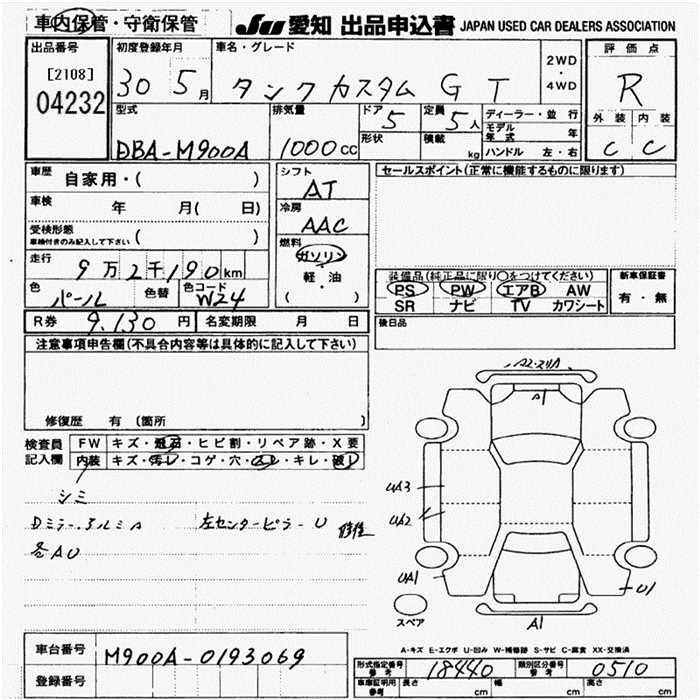 車内保管・守衛保管
JU 愛知 出品申込書 JAPAN USED CAR DEALERS ASSOCIATION
出品番号
[2108]
04232
初度登録年月
30 5月
車名・グレード
タンク カスタム G T
2WD
・
4WD
評価点
R
外装 内装
C C
型式
DBA-M900A
排気量
1000cc
ドア 5
形状
定員 5人
積載 kg
ディーラー・並行
モデル年式 年
ハンドル 左・右
車歴 自家用・( )
車検 年 月( 日)
受検形態
車検付きのみ記入して下さい ( )
走行
9万2千190km
色 パール 色替
色コード W24
シフト
AT
冷房
AAC
燃料
ガソリン
軽・油
( )
セールスポイント(正常に機能するものに限ります)
装備品(純正品に限り○をつけてください)
PS PW エアB AW
SR ナビ TV カワシート
新車保証書
有・無
後日品
R券 9,130円 名変期限 月 日
注意事項申告欄(不具合内容等は具体的に記入して下さい)
修復歴 有 (箇所 )
検査員
記入欄
FW キズ・飛石・ヒビ割・リペア跡・X要
内装 キズ・汚レ・コゲ・穴・スレ・キレ・破レ
シミ
左センターピラーU 修復
各AU
A2・スリA
A1
UA3
UA2
UA1
U1
A1
スペア
A-キズ E-エクボ U-凹み W-補修跡 S-サビ C-腐食 XX-交換済
車台番号 M900A-0193069
登録番号
形式指定番号 参考 18440
類別区分番号 参考 0510
車庫証明用 参考 長さ cm 幅 cm 高さ cm